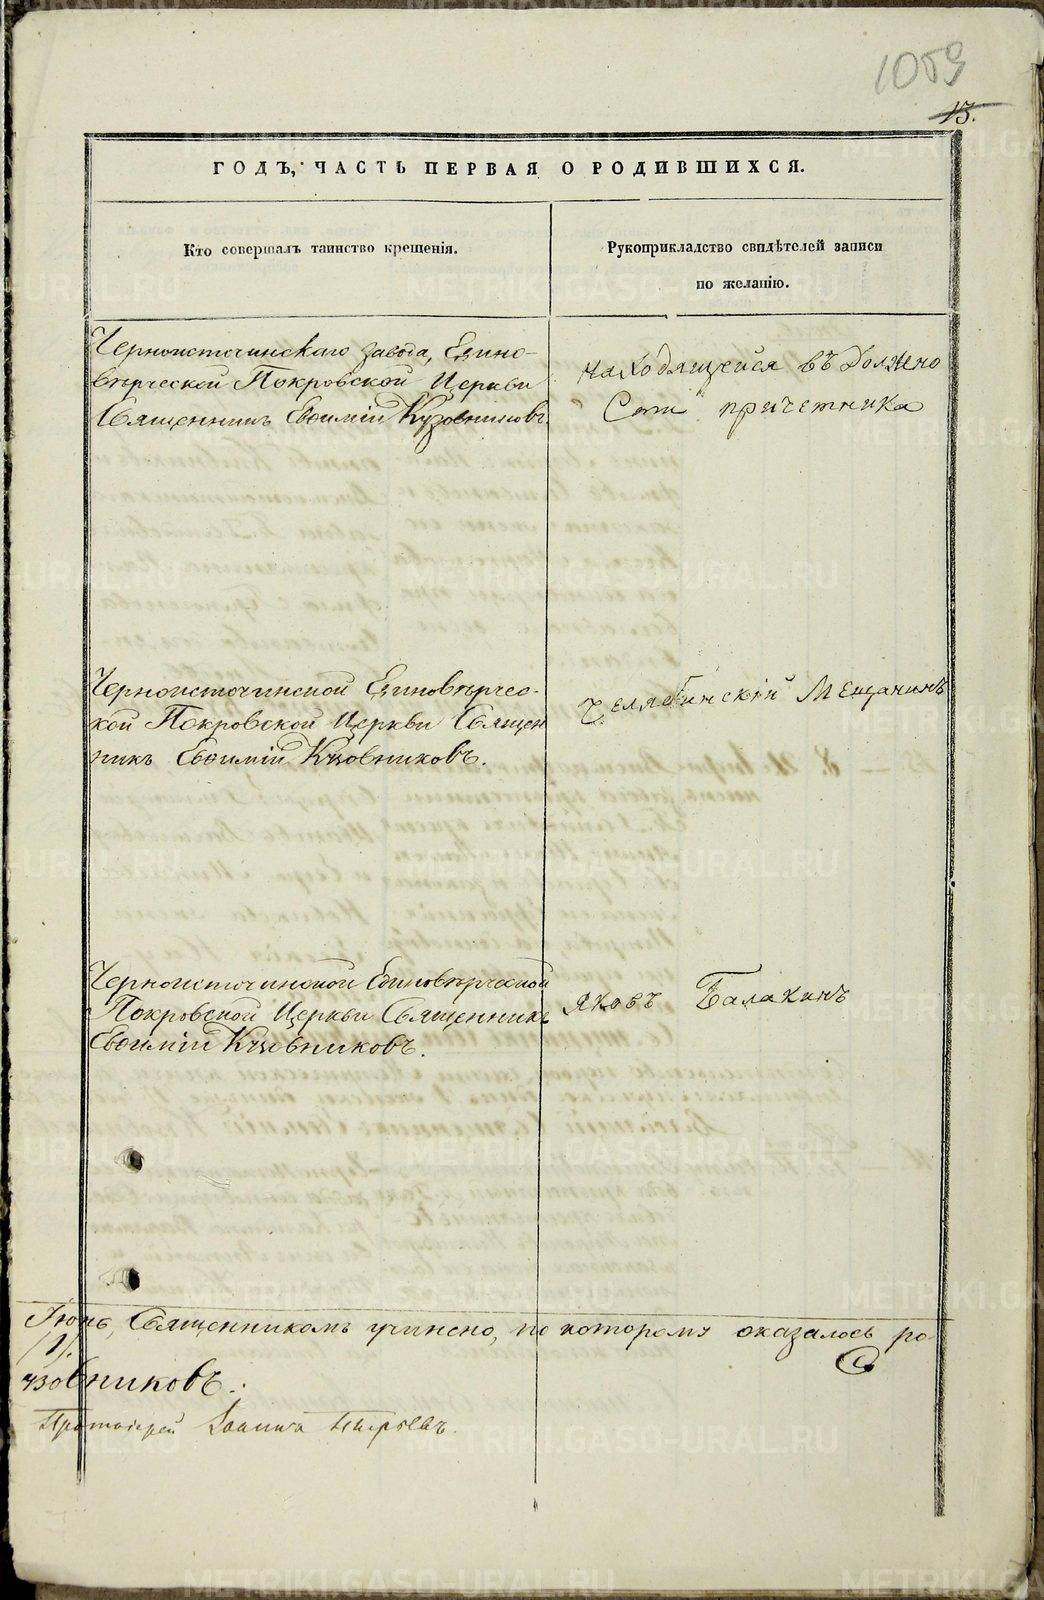 1059
13.
ГОДЪ, ЧАСТЬ ПЕРВАЯ О РОДИВШИХСЯ.
Кто совершалъ таинство крещенія.
Рукоприкладство свидѣтелей записи
по желанію.
Черноисточинскаго завода, Едино-
вѣрческой Покровской Церкви
Священникъ Евѳимій Кузовниковъ.
находящейся въ должно
сти причетника
Черноисточинской Единовѣрчес-
кой Покровской Церкви Священ
никъ Евѳимій Кузовниковъ.
Челябинскій Мещанинъ
Черноисточинской Единовѣрческой
Покровской Церкви Священникъ
Евѳимій Кузовниковъ.
Яковъ Балакинъ
Іюнь, Священникомъ учинено, по которому оказалось ро-
(1).
узовниковъ.
Протоіерей Іоаннъ
METRIKI.GASO-URAL.RU